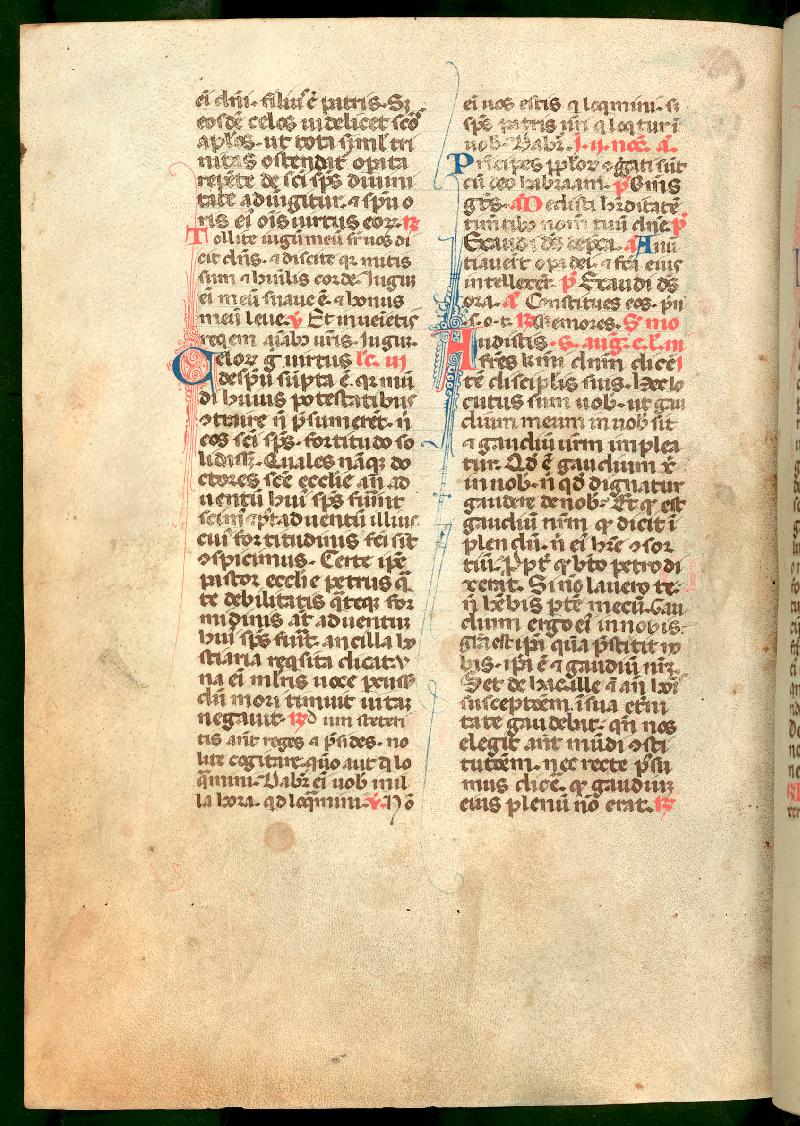 ei dñi. filius ẽ patris. Sz
eosdẽ celos uidelicet scõs
aplos. ut tota simul tri
nitas ostendat opita
repẽte de sci sps diuini
tate adiungitur. ⁊ spũ o
ris ei oĩs uirtus eoꝝ. ꝶ
Tollite iugũ meũ sr uos di
cit dñs. ⁊ discite qꝛ mitis
sum ⁊ huĩlis corde. Iugũ
ei meũ suaue ẽ. ⁊ honus
meũ leue. ℣ Et inueietis
reqem aĩabꝰ ur̃is. Iugum.
Celoꝝ g̊ uirtus lc. iij
de spũ sũpta ẽ. qꝛ mũ
di huius potestatibus
ↄtraire ñ p̃sumerẽt. ñ
eos sci sps. fortitudo so
lidass&. Quales nãqꝫ do
ctores scẽ ecclie añ ad
uentũ huiꝰ sps fuerint
scimꝰ ⁊ pt aduentũ illius
cuiꝰ fortitudinis fci sĩt
ↄspicimus. Certe ipẽ
pastor ecclie petrus q̃
te debilitatis q̃teqꝫ for
midinis añt aduentuꝫ
huiꝰ sps fuit. ancilla ho
stiaria reqsita dicat. v
na ei mlr̃is uoce pcuss
dũ mori timuit uitaꝫ
negauit. ꝶ Dum steteri
tis añt reges ⁊ p̃sides. no
lite cogitare. quo aut q̊ lo
q̃mini. Dabiť ei uob̃ in il
la hora. qd loqmini. ℣ Nõ
ei uos estis q loqmini. sz
sps patris ur̃i q loqturi
uob̃. Dabiť. I. ij. noc. a.
Principes pploꝝ ↄgr̃gati sũt
cũ deo habraam. p̃ Oms
gẽs. a Dedisti hr̃ditatẽ
timẽtibꝰ nom̃ tuũ dñe. p̃
Exaudi ds depca. a Anũ
tiauer̃t opa dei. ⁊ fca eius
intellexẽt. p̃ Exaudi ds
ora. a Constitues eos. pñ
s. o. t. ꝶ Memores. S. mo
Audistis. s. aug. c. l. iiii
frẽs kr̃mi dñm dicẽ
tẽ disciplis suis. Hec lo
cutus sum uob̃. ut gau
dium meum in uob̃ sit
⁊ gaudiũ ur̃m implea
tur. Qd ẽ gaudium x̃
in nob̃. ñ qd dignatur
gaudere de nob̃. Et q̊ est
gaudiũ nr̃m qꝫ dicit ĩ
plendũ. ñ ei hr̃e ↄsor
tiũ. Ppt qꝫ bto petro di
xerat. Si nõ lauero te.
ñ hẽbis ptẽ mecũ. Gau
dium ergo ei in nobis.
gr̃a est ipĩ quã p̃stitit no
bis. ipã ẽ ⁊ gaudiũ nr̃ꝫ.
Set de hac ille ⁊ añ nos
susceptõem. ĩ sua etni
tate gaudebat. qñ nos
elegit añt mũdi ↄsti
tutõem. nec recte p̃su
mus dicẽ. qꝫ gaudiũ
eius plenũ nõ erat. ꝶ